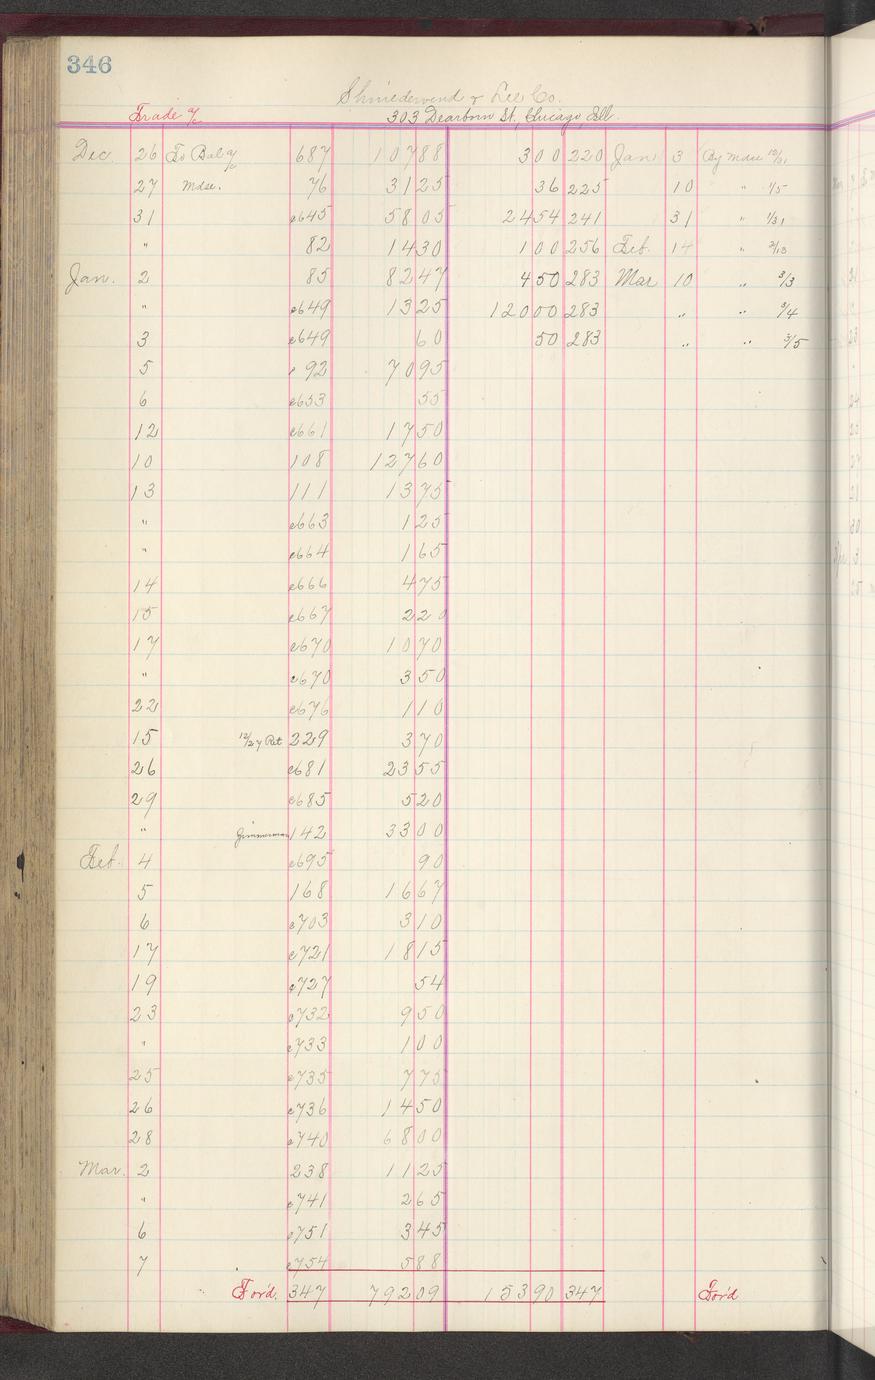 346
Shniedewend & Lee Co.
Trade a/c 303 Dearborn St., Chicago, Ill.
Dec. 26 To Bal a/c 687 107 88 3 00 220 Jan 3 By Mdse 12/31
27 Mdse. 76 31 25 36 225 10 " 1/5
31 c645 58 05 24 54 241 31 " 1/31
" 82 14 30 1 00 256 Feb. 14 " 2/13
Jan. 2 85 82 47 4 50 283 Mar 10 " 3/3
" c649 13 25 120 00 283 " " 3/4
3 c649 60 50 283 " " 3/5
5 92 70 95
6 c653 55
12 c661 17 50
10 108 127 60
13 111 13 75
" c663 1 25
" c664 1 65
14 c666 4 75
15 c667 2 20
17 c670 10 70
" c670 3 50
22 c676 1 10
15 12/27 Ret 229 3 70
26 c681 23 55
29 c685 5 20
" Zimmerman 142 33 00
Feb. 4 c695 90
5 168 16 67
6 c703 3 10
17 c721 18 15
19 c727 54
23 c732 9 50
" c733 1 00
25 c735 7 75
26 c736 14 50
28 c740 68 00
Mar. 2 238 11 25
" c741 2 65
6 c751 3 45
7 c754 5 88
For'd. 347 792 09 153 90 347 For'd